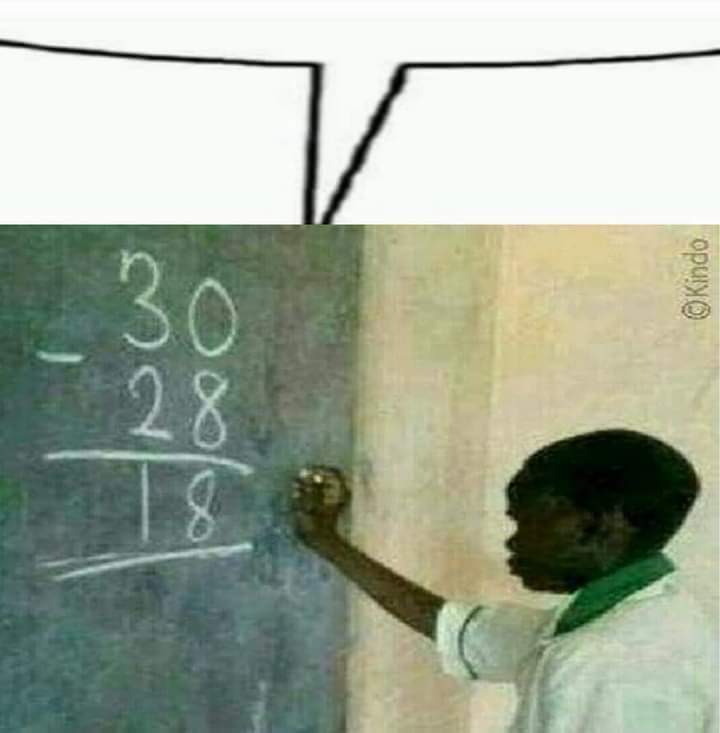 30
- 28
18
©Kindo